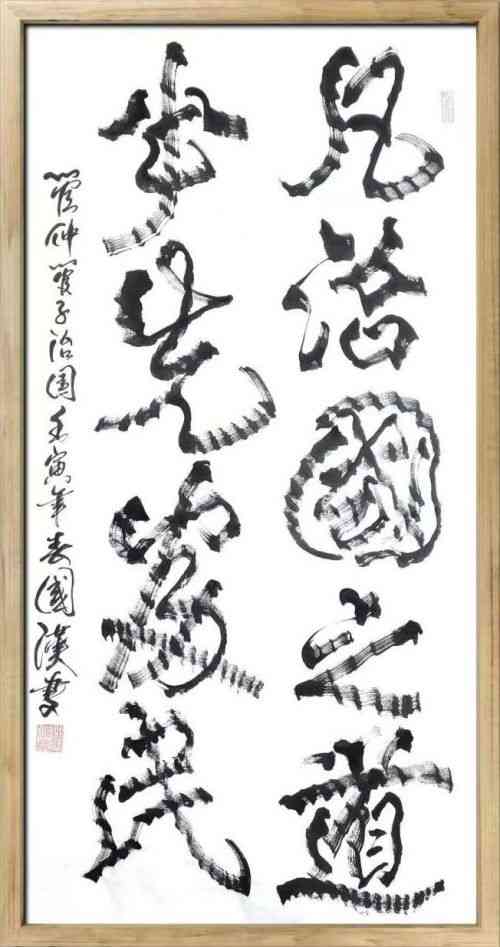 凡治國之道
必先富民
管仲管子治国壬寅年春國漢書